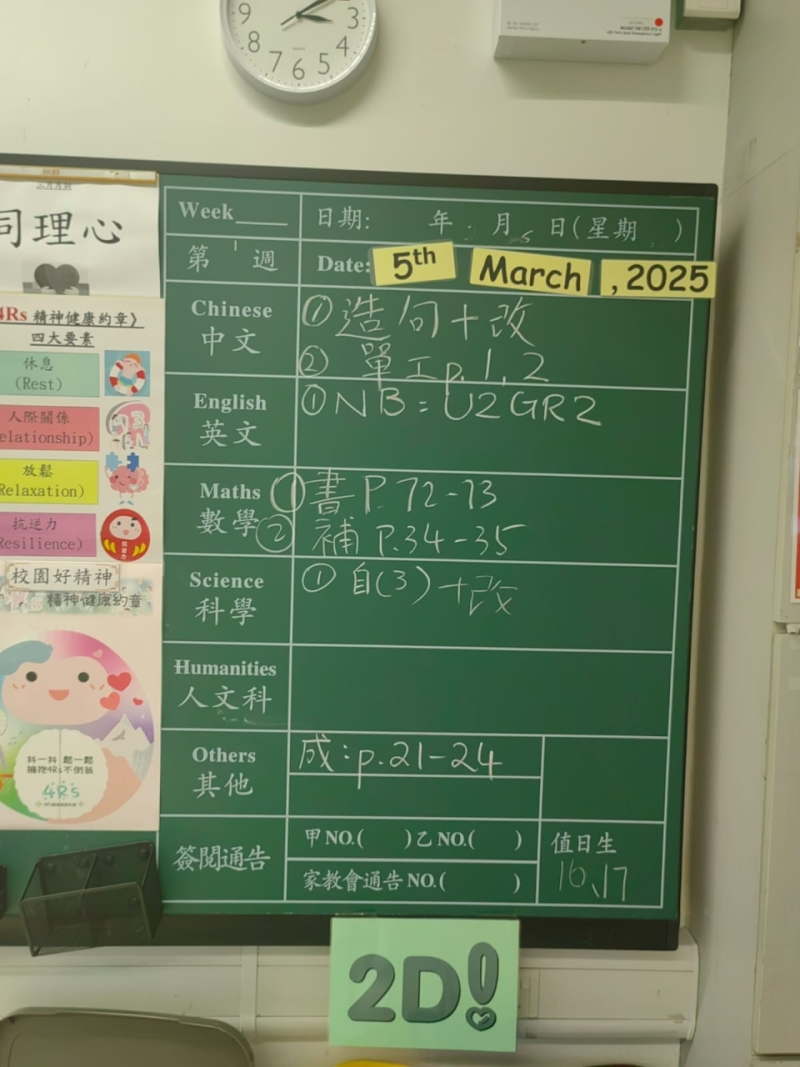 9 8 7 6 5 4 3
同理心
4Rs 精神健康約章》
四大要素
休息
(Rest)
人際關係
elationship)
放鬆
Relaxation)
抗逆力
Resilience)
校園好精神
精神健康約章
抖一抖 鬆一鬆
擁抱4Rs不倒翁
4Rs
Week 日期: 年 月 日(星期 )
第 週 Date: 5th March , 2025
Chinese 中文
①造句+改
② 單工p.1,2
English 英文
①NB:U2GR2
Maths 數學
①書P.72-73
②補P.34-35
Science 科學
①自(3)+改
Humanities 人文科
Others 其他
成:p.21-24
簽閱通告
甲NO.( )乙NO.( )
家教會通告NO.( )
值日生
16、17
2D!